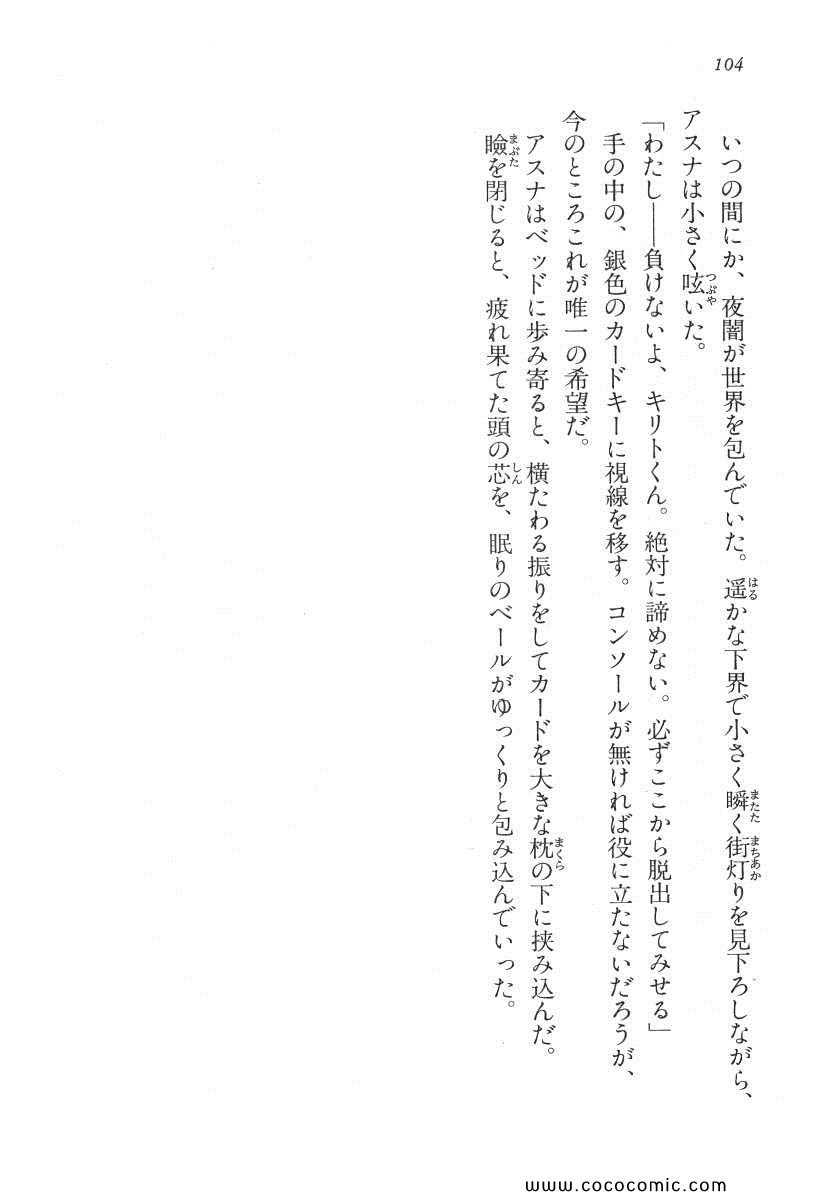 104
いつの間にか、夜闇が世界を包んでいた。遥かな下界で小さく瞬く街灯りを見下ろしながら、
アスナは小さく呟いた。
「わたし――負けないよ、キリトくん。絶対に諦めない。必ずここから脱出してみせる」
手の中の、銀色のカードキーに視線を移す。コンソールが無ければ役に立たないだろうが、
今のところこれが唯一の希望だ。
アスナはベッドに歩み寄ると、横たわる振りをしてカードを大きな枕の下に挟み込んだ。
瞼を閉じると、疲れ果てた頭の芯を、眠りのベールがゆっくりと包み込んでいった。
www.cococomic.com/